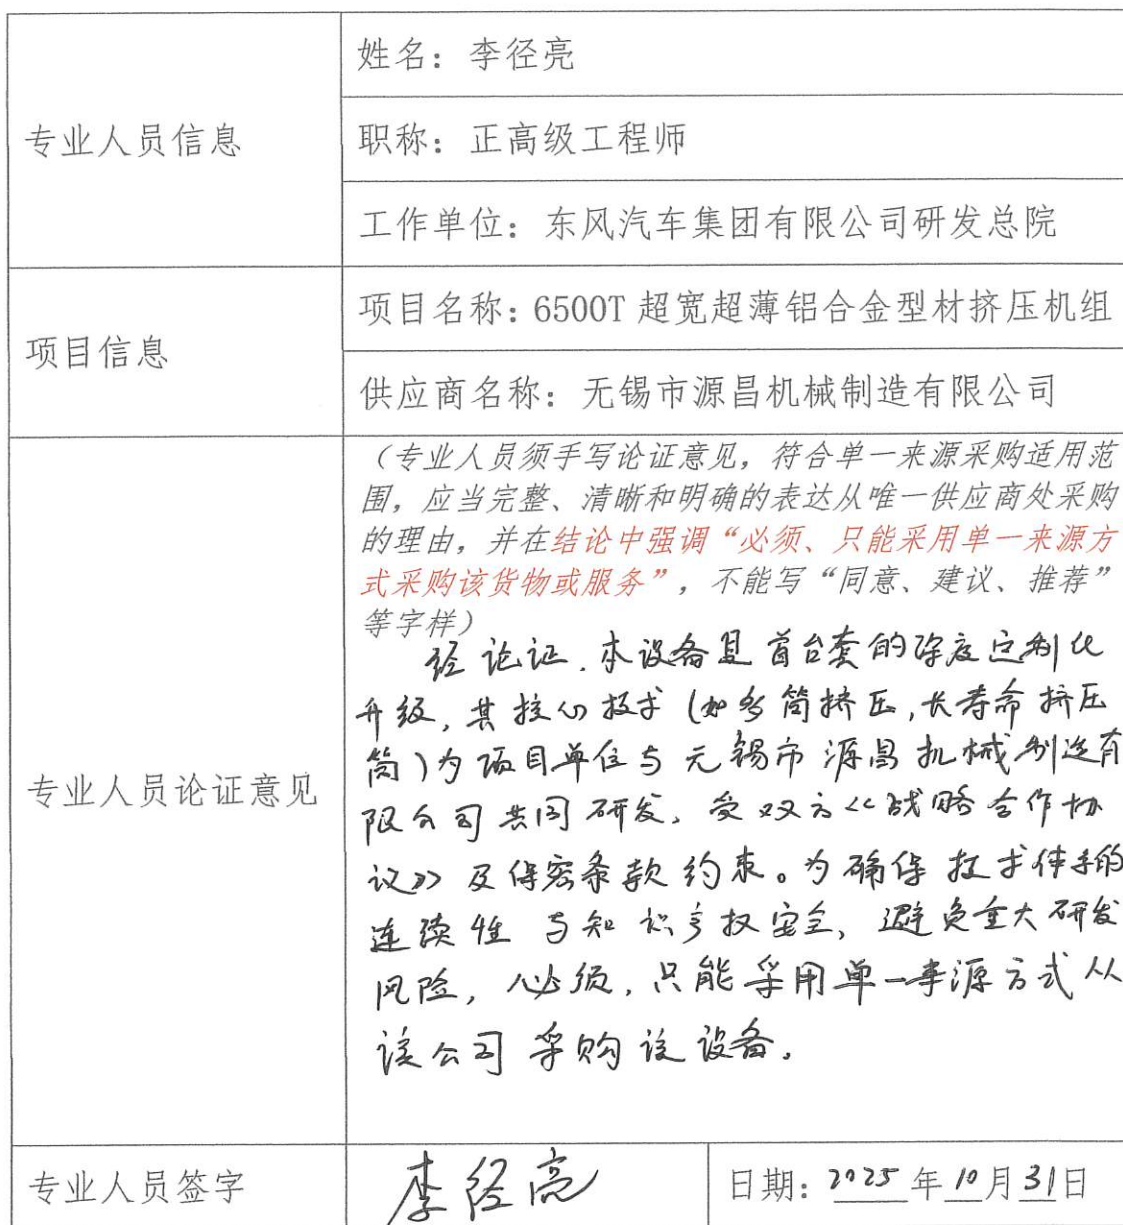 专业人员信息
姓名：李径亮
职称：正高级工程师
工作单位：东风汽车集团有限公司研发总院
项目信息
项目名称：6500T 超宽超薄铝合金型材挤压机组
供应商名称：无锡市源昌机械制造有限公司
专业人员论证意见
（专业人员须手写论证意见，符合单一来源采购适用范
围，应当完整、清晰和明确的表达从唯一供应商处采购
的理由，并在结论中强调“必须、只能采用单一来源方
式采购该货物或服务”，不能写“同意、建议、推荐”
等字样）
经论证，本设备是首台套的深度定制化
升级，其核心技术（如多筒挤压，长寿命挤压
筒）为项目单位与无锡市源昌机械制造有
限公司共同研发，受双方《战略合作协
议》及保密条款约束。为确保技术体系的
连续性与知识产权安全，避免重大研发
风险，必须，只能采用单一来源方式从
该公司采购该设备。
专业人员签字
李径亮
日期：2025年10月31日